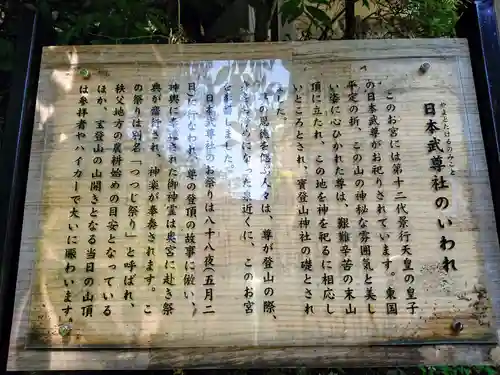 やまとたけるのみこと
日本武尊社のいわれ
このお宮には第十二代景行天皇の皇子
の日本武尊がお祀りされています。東国
平定の折、この山の神秘な雰囲気と美し
い姿に心ひかれた尊は、艱難辛苦の末山
頂に立たれ、この地を神を祀るに相応し
いところとされ、寳登山神社の礎とされ
ました。
の恩徳を偲ぶ人々は、尊が登山の際、
になった泉近くに、このお宮
しました。
日本武尊社のお祭りは八十八夜(五月二
日)に行なわれ、尊の登頂の故事に倣い、
神輿に
された御神霊は奥宮に赴き祭
典が
され、神楽が奉奏されます。こ
の祭りは別名「つつじ祭り」と呼ばれ、
秩父地方の農耕始めの目安となっている
ほか、宝登山の山開きとなる当日の山頂
は参拝者やハイカーで大いに賑わいます。